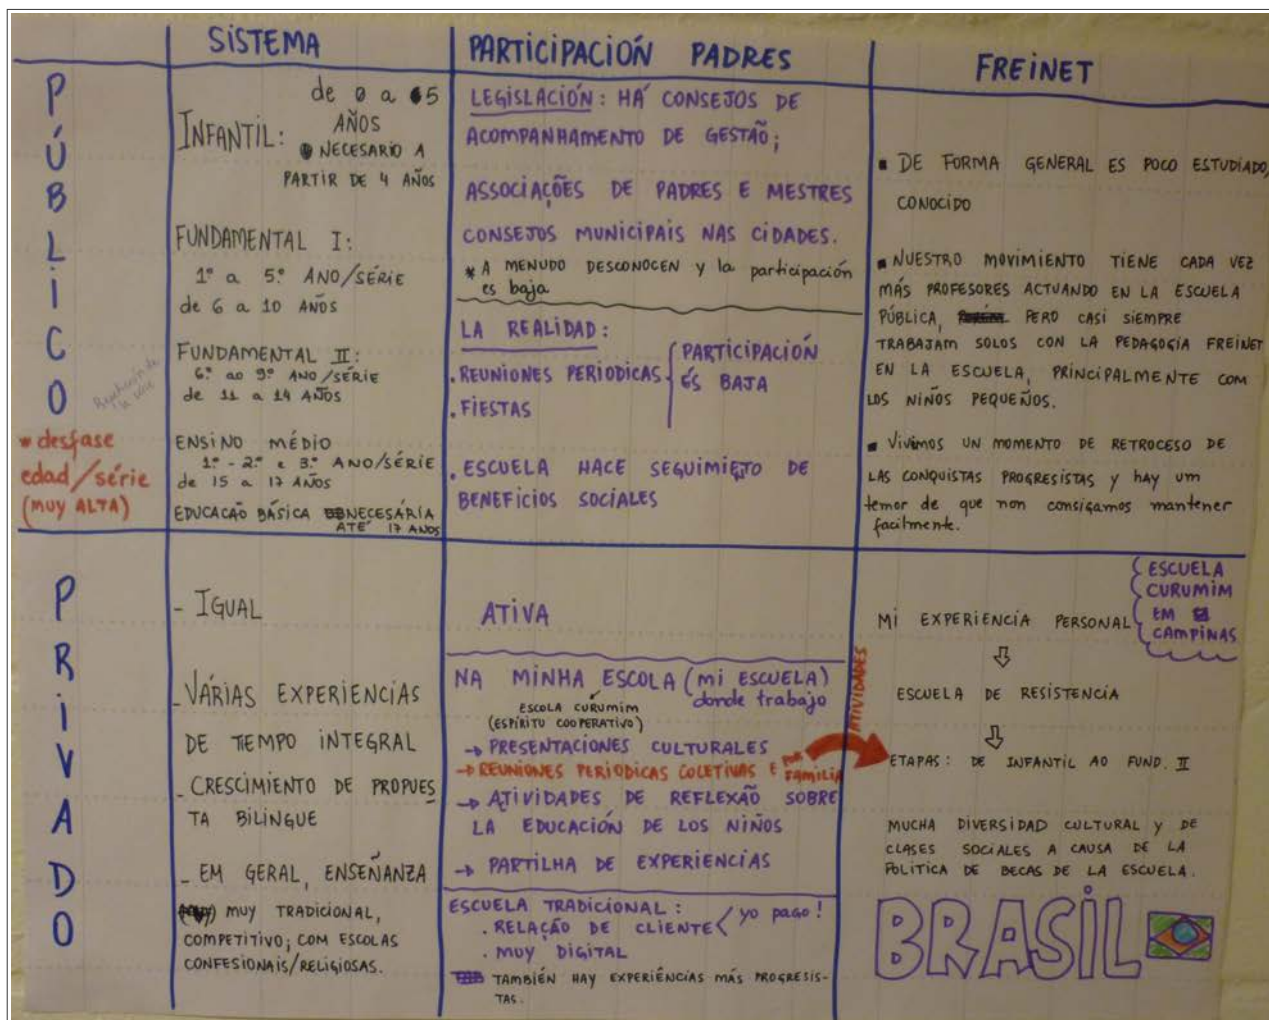 SISTEMA
PARTICIPACIÓN PADRES
FREINET
PÚBLICO
* desfase
edad/série
(muy ALTA)
INFANTIL:
de 0 a 5
AÑOS
NECESARIO A
PARTIR DE 4 AÑOS
FUNDAMENTAL I:
1º a 5º ANO/SÉRIE
de 6 a 10 AÑOS
FUNDAMENTAL II:
6º ao 9º ANO/SÉRIE
de 11 a 14 AÑOS
ENSINO MÉDIO
1º - 2º e 3º ANO/SÉRIE
de 15 a 17 AÑOS
EDUCACÃO BÁSICA NECESÁRIA
ATÉ 17 ANOS
LEGISLACIÓN: HÁ CONSEJOS DE
ACOMPANHAMENTO DE GESTÃO;
ASSOCIAÇÕES DE PADRES E MESTRES
CONSEJOS MUNICIPAIS NAS CIDADES.
* A MENUDO DESCONOCEN y la participación
es baja
LA REALIDAD:
. REUNIONES PERIODICAS
. FIESTAS
PARTICIPACIÓN
ÉS BAJA
. ESCUELA HACE SEGUIMIETO DE
BENEFICIOS SOCIALES
▪ DE FORMA GENERAL ES POCO ESTUDIADO,
CONOCIDO
▪ NUESTRO MOVIMIENTO TIENE CADA VEZ
MÁS PROFESORES ACTUANDO EN LA ESCUELA
PÚBLICA, PERO CASI SIEMPRE
TRABAJAM SOLOS CON LA PEDAGOGÍA FREINET
EN LA ESCUELA, PRINCIPALMENTE COM
LOS NIÑOS PEQUEÑOS.
▪ Vivimos UN MOMENTO DE RETROCESO DE
LAS CONQUISTAS PROGRESISTAS y hay um
temor de que non consigamos mantener
facilmente.
PRIVADO
- IGUAL
- VÁRIAS EXPERIENCIAS
DE TIEMPO INTEGRAL
- CRESCIMIENTO DE PROPUES
TA BILINGUE
- EM GERAL, ENSEÑANZA
MUY TRADICIONAL,
COMPETITIVO; COM ESCOLAS
CONFESIONAIS/RELIGIOSAS.
ATIVA
NA MINHA ESCOLA (mi ESCUELA)
donde trabajo
ESCOLA CURUMIM
(ESPÍRITU COOPERATIVO)
→ PRESENTACIONES CULTURALES
→ REUNIONES PERIODICAS COLETIVAS E POR
FAMILIA
→ ATIVIDADES DE REFLEXÃO SOBRE
LA EDUCACIÓN DE LOS NIÑOS
→ PARTILHA DE EXPERIENCIAS
ESCUELA TRADICIONAL:
. RELAÇÃO DE CLIENTE < yo pago!
. MUY DIGITAL
TAMBIÉN HAY EXPERIÉNCIAS MÁS PROGRESIS-
TAS.
ATIVIDADES
MI EXPERIENCIA PERSONAL
ESCUELA
CURUMIM
EM
CAMPINAS
ESCUELA DE RESISTENCIA
ETAPAS: DE INFANTIL AO FUND. II
MUCHA DIVERSIDAD CULTURAL y DE
CLASES SOCIALES A CAUSA DE LA
POLITICA DE BECAS DE LA ESCUELA.
BRASIL